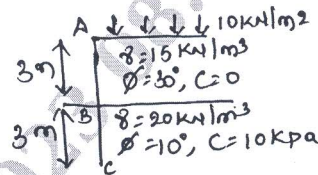 A 10KN/m2
3m γ=15KN/m3
Ø=30°, C=0
B γ=20KN/m3
3m Ø=10°, C=10Kpa
C